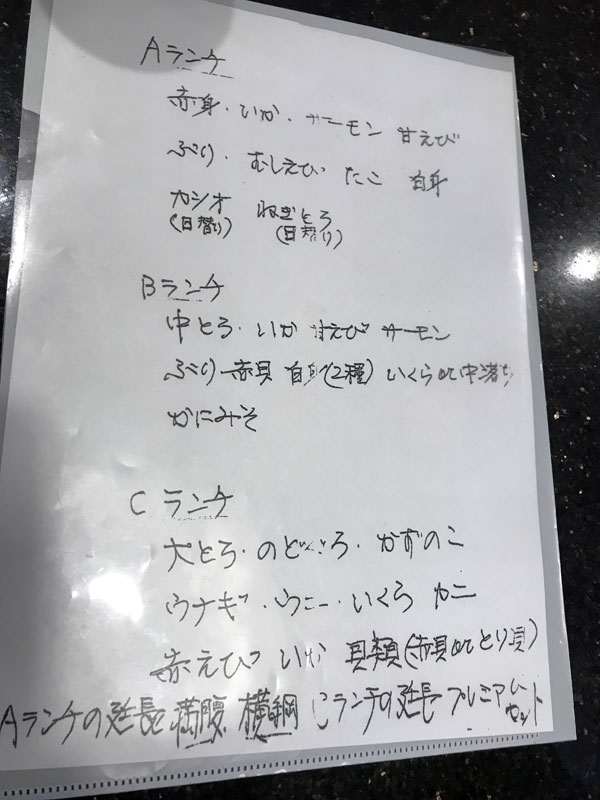 Aランチ
赤身・いか・サーモン 甘えび
ぶり・むしえび たこ 白身
カツオ ねぎとろ
(日替り) (日替り)
Bランチ
中とろ・いか 甘えび サーモン
ぶり 赤貝 白身(2種) いくらor中落ち
かにみそ
C ランチ
大とろ・のどぐろ・かずのこ
ウナギ・ウニー・いくら カニ
赤えび いか 貝類(赤貝orとり貝)
Aランチの延長 満腹 横綱 Cランチの延長 プレミアムセット